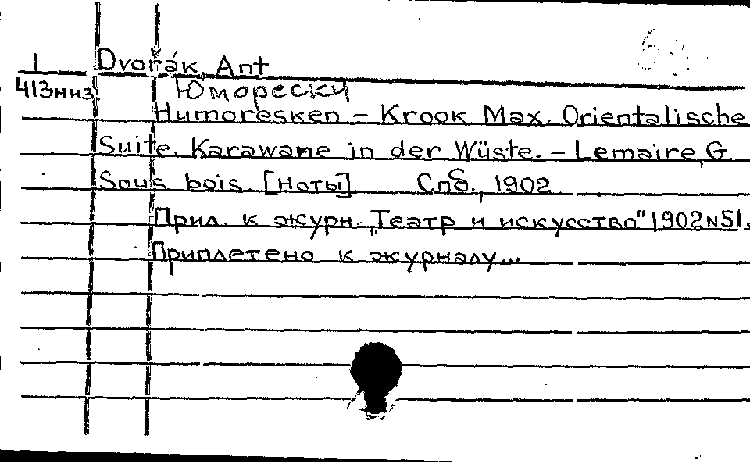 1 Dvořák, Ant
413ннз. Юморески
Humoresken – Krook Max. Orientalische
Suite. Karawane in der Wüste. – Lemaire, G
Sous bois. [Ноты] Спб., 1902
Прил. к журн. „Театр и искусство" 1902 N51.
Приплетено к журналу...